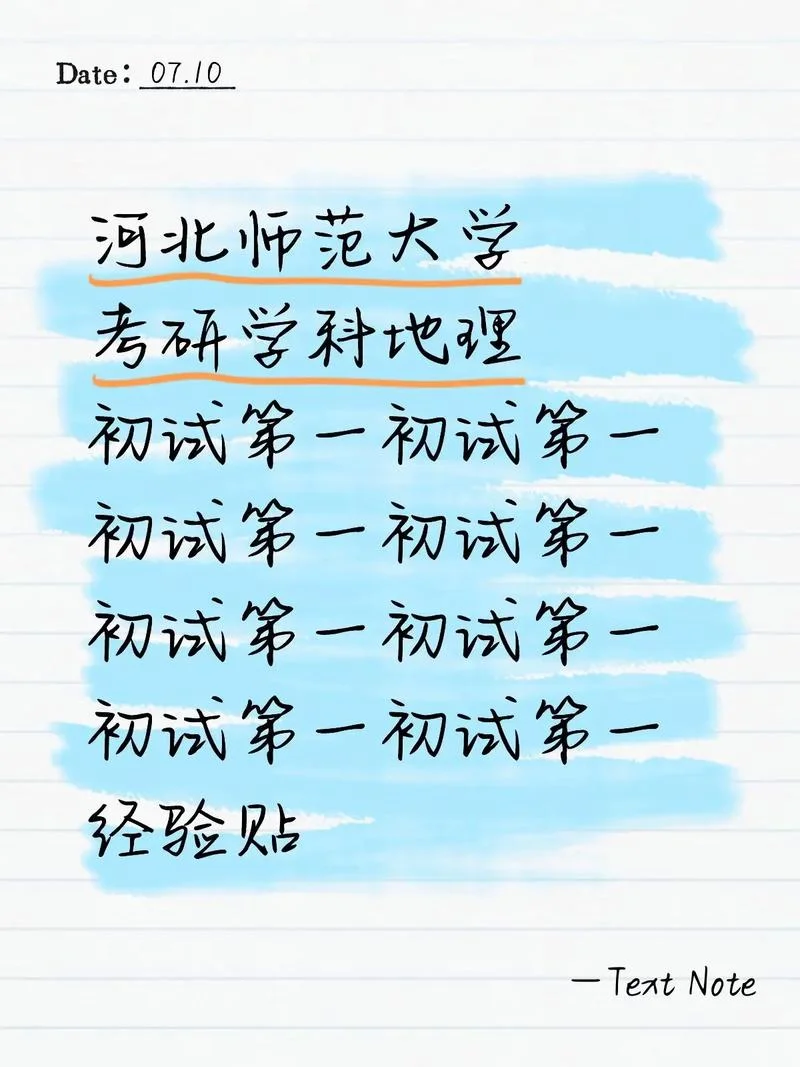 Date: 07.10
河北师范大学
考研学科地理
初试第一初试第一
初试第一初试第一
初试第一初试第一
初试第一初试第一
经验贴
—Text Note